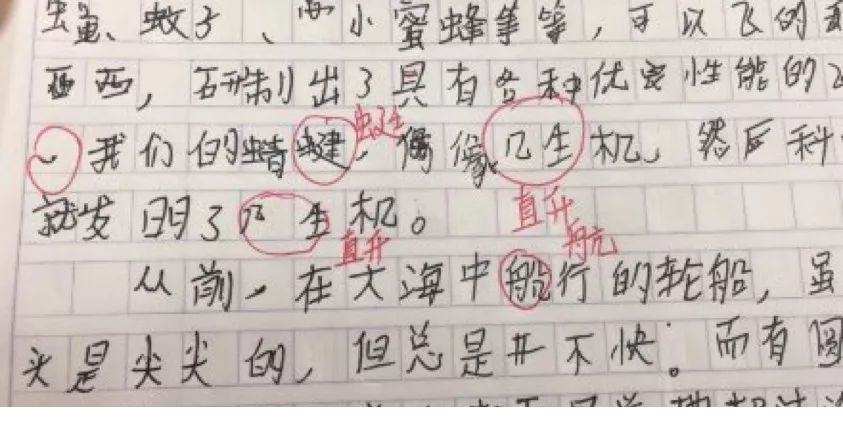 蚊子、
小蜜蜂等等,可以飞的
西,研制出了具有各种优良性能的
蜓
我们的蜻,偶像几生机、然后科
就发明了几生机。
直升
直升
航
从前,在大海中船行的轮船,虽
头是尖尖的,但总是开不快。而有圆